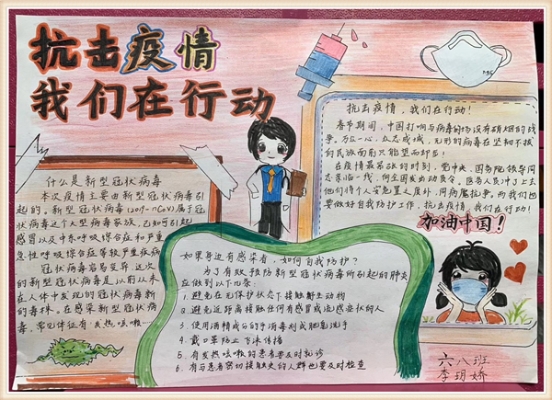 抗击疫情
我们在行动
什么是新型冠状病毒
本次疫情主要由新型冠状病毒引
起的，新型冠状病毒(2019-nCoV)属于冠
状病毒这个大型病毒家族，已知可引起
感冒以及中东呼吸综合症和严重
急性呼吸综合症等较严重疾病
冠状病毒容易变异
的新型冠状病毒是以前从未
在人体中发现的冠状病毒新
的毒株。在感染新型冠状病
毒，常见体征有：发热咳嗽……
抗击疫情，我们在行动！
春节期间，中国打响与病毒的场没有硝烟的战
争。万众一心，众志成城，无形的病毒在坚韧不拔
的民族面前只能望而却步！
在疫情最紧张的时刻，党中央、国务院领导同
他们将个人安危置之度外，同病魔抗争，而我们也
要做好自我防护工作，抗击疫情，我们在行动！
加油中国！
如果身边有感染者，如何自我防护？
为了有效预防新型冠状病毒所引起的肺炎
应做到以下几条：
1. 避免在无保护状态下接触野生动物
2. 避免近距离接触任何有感冒或流感症状的人
3. 使用酒精成分的手消毒剂或肥皂洗手
4. 戴口罩防止飞沫传播
5. 有发热咳嗽的患者要及时就诊
6. 有与患者密切接触史的人群也要及时检查
六八班
李玥娇